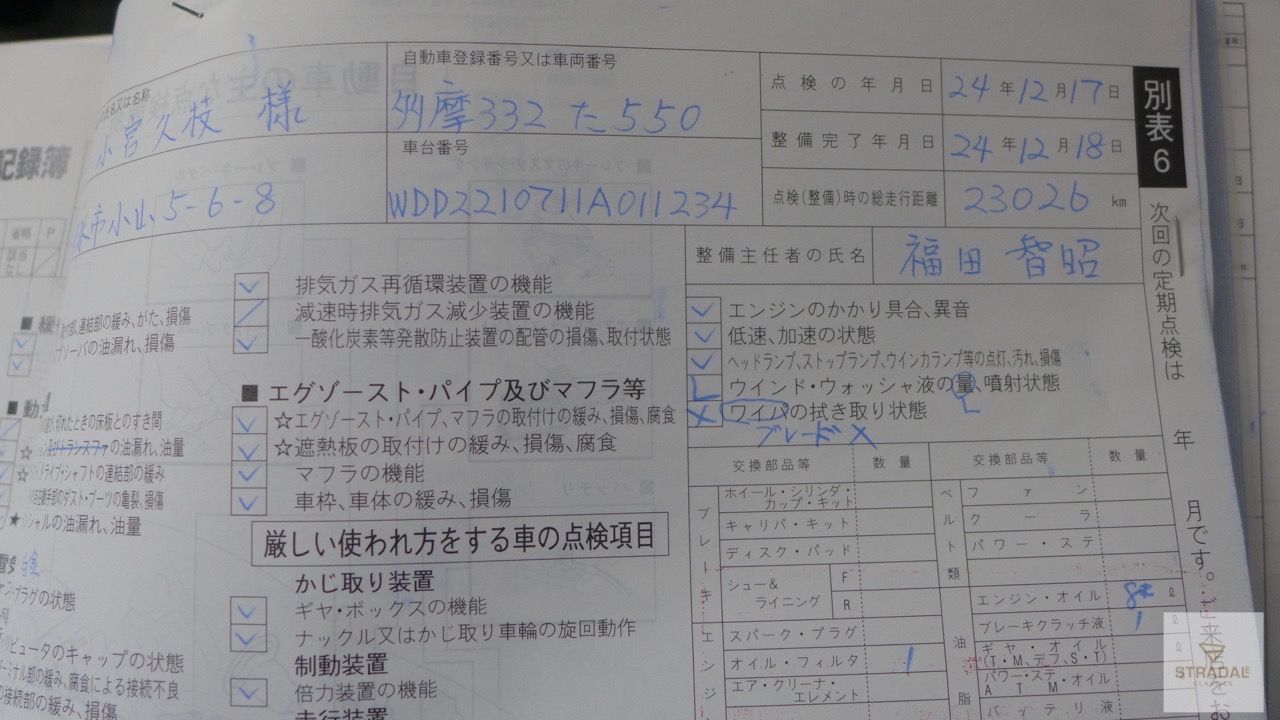 氏名又は名称
小宮久枝 様
自動車登録番号又は車両番号
多摩332 た 550
車台番号
WDD2210711A011234
市小山5-6-8
点検の年月日 24年12月17日
整備完了年月日 24年12月18日
点検(整備)時の総走行距離 23026 km
整備主任者の氏名 福田 智昭
別表6
次回の定期点検は 年 月です。ご来
記録簿
省略 P
該当なし
排気ガス再循環装置の機能
減速時排気ガス減少装置の機能
一酸化炭素等発散防止装置の配管の損傷、取付状態
■ エグゾースト・パイプ及びマフラ等
☆エグゾースト・パイプ、マフラの取付けの緩み、損傷、腐食
☆遮熱板の取付けの緩み、損傷、腐食
マフラの機能
車枠、車体の緩み、損傷
厳しい使われ方をする車の点検項目
かじ取り装置
ギヤ・ボックスの機能
ナックル又はかじ取り車輪の旋回動作
制動装置
倍力装置の機能
走行装置
連結部の緩み、がた、損傷
の油漏れ、損傷
れたときの床板とのすき間
の油漏れ、油量
ライブ・シャフトの連結部の緩み
手部のダスト・ブーツの亀裂、損傷
シャルの油漏れ、油量
プラグの状態
リビュータのキャップの状態
ーミナル部の緩み、腐食による接続不良
接続部の緩み、損傷
エンジンのかかり具合、異音
低速、加速の状態
ヘッドランプ、ストップランプ、ウインカランプ等の点灯、汚れ、損傷
ウインド・ウォッシャ液の量、噴射状態
L
ワイパの拭き取り状態
ブレード X
交換部品等 数量 交換部品等 数量
ブレーキ
ホイール・シリンダ・カップ・キット
キャリパ・キット
ディスク・パッド
シュー&ライニング F R
エンジ
スパーク・プラグ
オイル・フィルタ 1
エア・クリーナ・エレメント
ベルト類
ファン
クーラ
パワー・ステ
油脂
エンジン・オイル 8 ℓ
ブレーキクラッチ液 1 ℓ
ギヤ・オイル(T・M、デフ、S・T) ℓ
パワー・ステ・オイル
ATM・オイル
バッテリ液
STRADALE